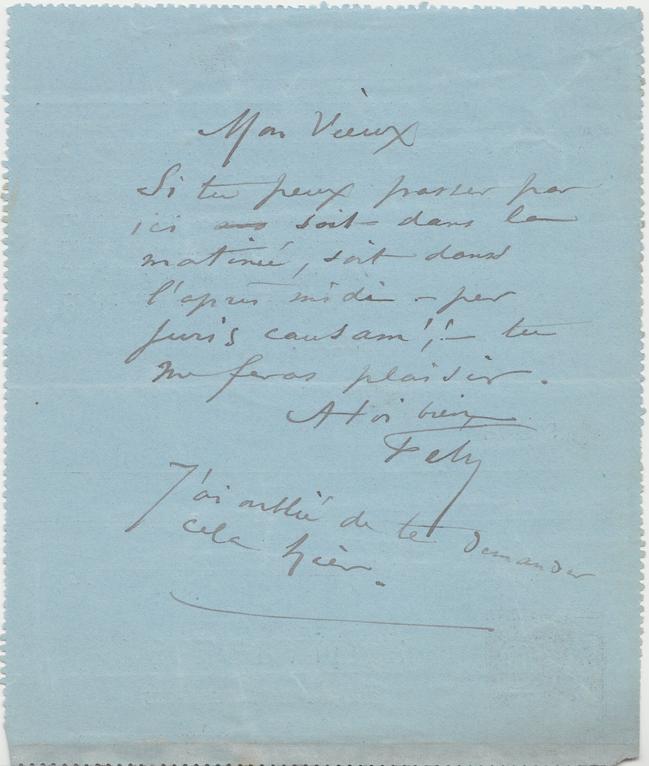 Mon Vieux
Si tu peux passer par
ici soit dans la
matinée, soit dans
l'après midi - per
juris causam!! - tu
me feras plaisir.
A toi bien
Fély
J'ai oublié de te demander
cela hier.